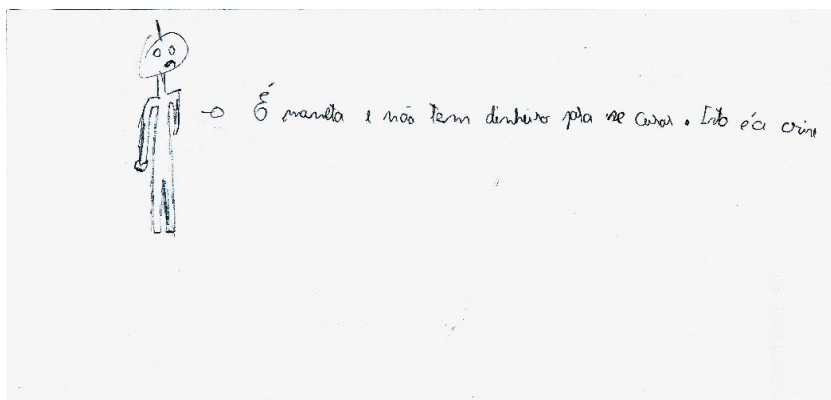 É maneta e não tem dinheiro pra se curar. Isto é a crise